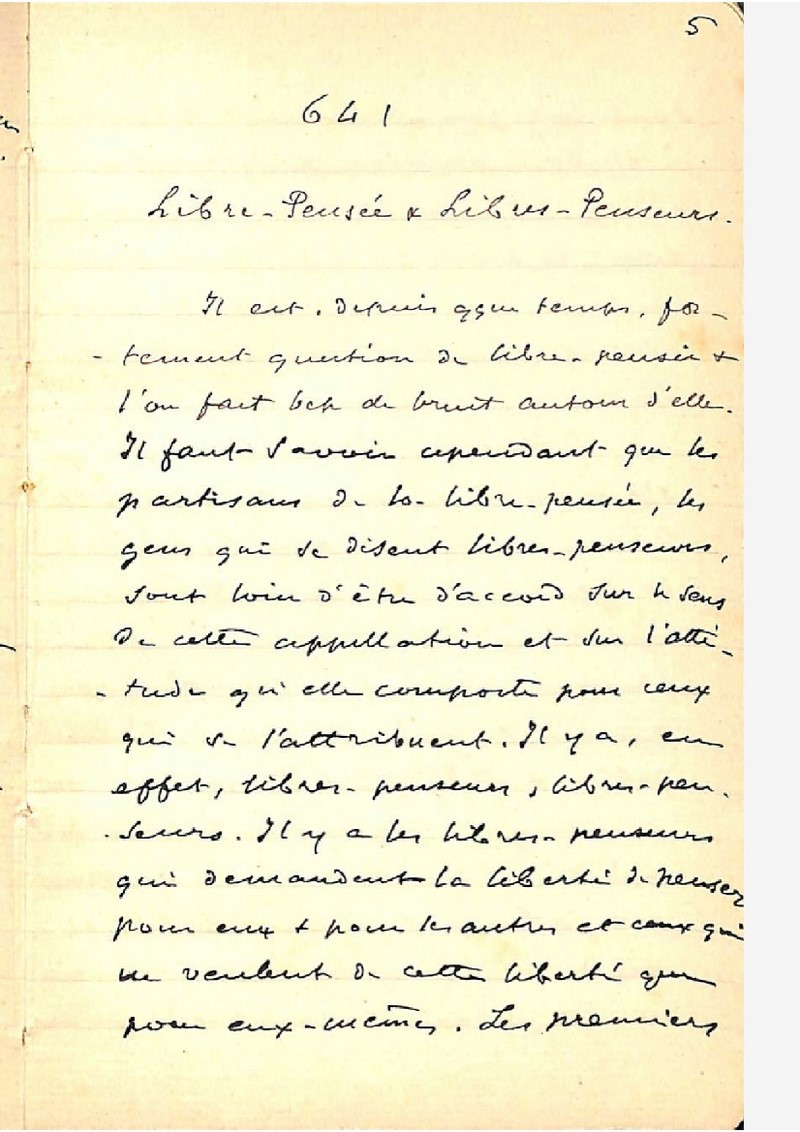 5
641
Libre-Pensée & Libres-Penseurs.
Il est, depuis qque temps, for-
-tement question de libre-pensée &
l'on fait bcp de bruit autour d'elle.
Il faut savoir cependant que les
partisans de la libre-pensée, les
gens qui se disent libres-penseurs,
sont loin d'être d'accord sur le sens
de cette appellation et sur l'atti-
-tude qu'elle comporte pour ceux
qui se l'attribuent. Il y a, en
effet, libres-penseurs & libres-pen-
-seurs. Il y a les libres-penseurs
qui demandent la liberté de penser
pour eux & pour les autres et ceux qui
ne veulent de cette liberté que
pour eux-mêmes. Les premiers